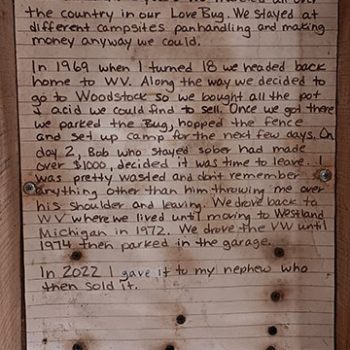 the country in our Love Bug. We stayed at
different campsites panhandling and making
money anyway we could.
In 1969 when I turned 18 we headed back
home to WV. Along the way we decided to
go to Woodstock so we bought all the pot
& acid we could find to sell. Once we got there
we parked the Bug, hopped the fence
and set up camp for the next few days. On
day 2, Bob who stayed sober had made
over $1000, decided it was time to leave. I
was pretty wasted and don't remember
anything other than him throwing me over
his shoulder and leaving. We drove back to
WV where we lived until moving to Westland
Michigan in 1972. We drove the VW until
1974 then parked in the garage.
In 2022 I gave it to my nephew who
then sold it.